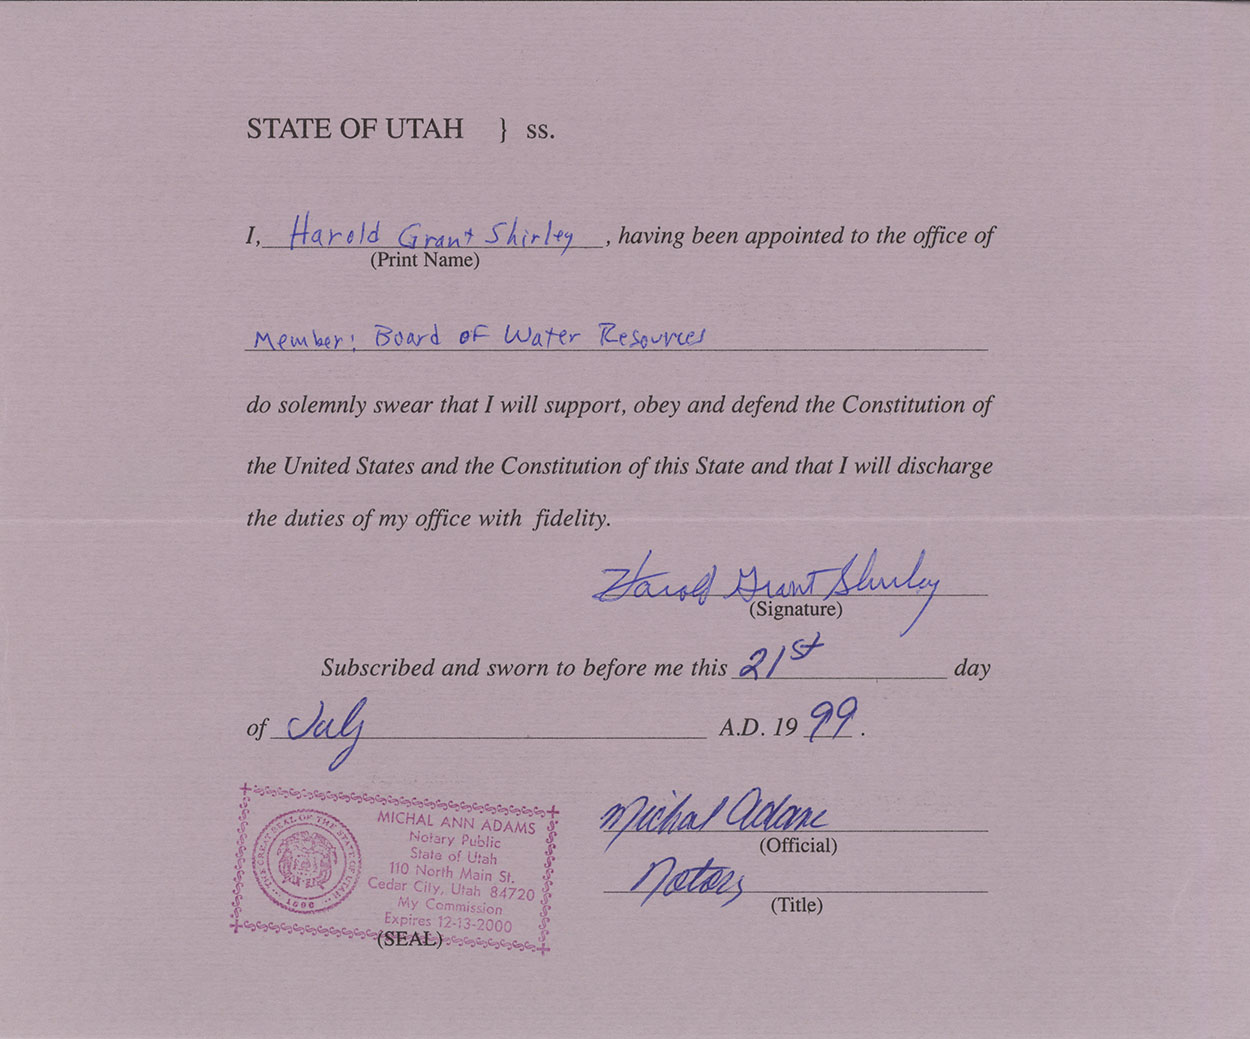 STATE OF UTAH } ss.
I, Harold Grant Shirley, having been appointed to the office of
(Print Name)
Member: Board of Water Resources
do solemnly swear that I will support, obey and defend the Constitution of
the United States and the Constitution of this State and that I will discharge
the duties of my office with fidelity.
Harold Grant Shirley
(Signature)
Subscribed and sworn to before me this 21st day
of July A.D. 1999.
THE GREAT SEAL OF THE STATE OF UTAH
1896
MICHAL ANN ADAMS
Notary Public
State of Utah
110 North Main St.
Cedar City, Utah 84720
My Commission
Expires 12-13-2000
(SEAL)
Michal Adams
(Official)
Notary
(Title)